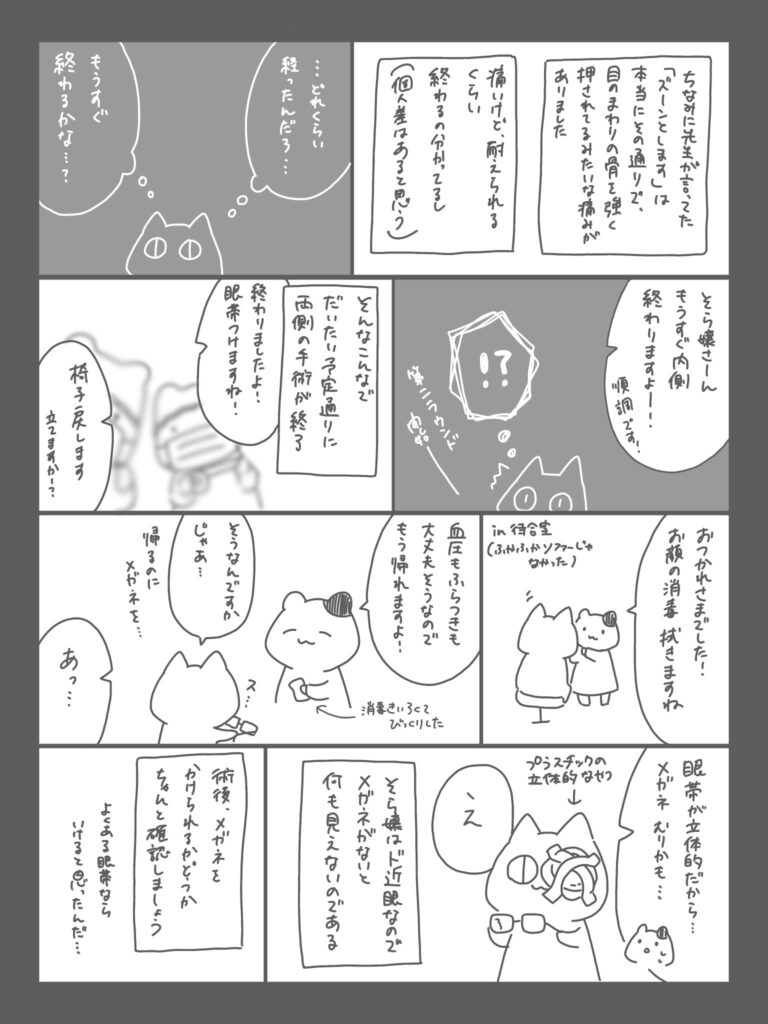 ちなみに先生が言ってた
「ズーンとします」は
本当にその通りで、
目のまわりの骨を強く
押されてるみたいな痛みが
ありました
痛いけど、耐えられる
くらい
終わるの分かってるし
(個人差はあると思う)
…どれくらい
経ったんだろ…
もうすぐ
終わるかな…?
そら嬢さーん
もうすぐ内側
終わりますよー!
順調です!
!?
第二ラウンド
開始
そんなこんなで
だいたい予定通りに
両側の手術が終了
終わりましたよ!
眼帯つけますね!
椅子戻します
立てますかー?
おつかれさまでした!
お顔の消毒 拭きますね
in 待合室
(ふかふかソファーじゃ
なかった)
血圧もふらつきも
大丈夫そうなので
もう帰れますよ!
消毒きいろくて
びっくりした
そうなんですか
じゃあ…
帰るのに
メガネを…
ス…
あっ…
眼帯が立体的だから…
メガネ むりかも…
プラスチックの
立体的なやつ
え
そら嬢はド近眼なので
メガネがないと
何も見えないのである
術後、メガネを
かけられるかどうか
ちゃんと確認しましょう
よくある眼帯なら
いけると思ったんだ…